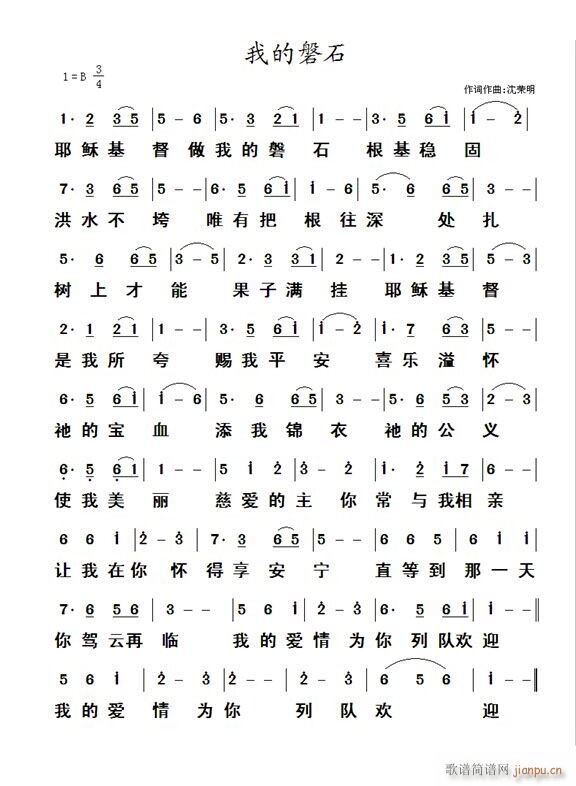 我的磐石
1=B 3/4
作词作曲:沈荣明
1· 2 35 | 5 - 6 | 5· 3 21 | 2 - - | 3· 5 6i | i - 2 |
耶稣基督做我的磐石根基稳固
7· 3 65 | 5 - - | 5· 6 6i | i - - | 5· 6 | 6 65 | 3 - - |
洪水不垮唯有把根往深处扎
5· 6 65 | 3 - 5 | 2· 3 31 | 2 - - | 1· 2 35 | 5 - 3 |
树上才能果子满挂耶稣基督
2· 1 21 | 1 - - | 3· 5 6i | i - 2 | i· 7 63 | 5 - - |
是我所夸赐我平安喜乐溢怀
6· 5 6i | i - 6 | 5· 6 65 | 3 - - | 5· 6 53 | 2 - 3 |
祂的宝血添我锦衣祂的公义
6· 5 61 | 1 - - | 5 i i | 2 - 3 | i· 2 i7 | 6 - - |
使我美丽慈爱的主你常与我相亲
6 6 i | 2 - 3 | 7· 3 65 | 5 - - | 6 6 i | 2 - 3 |
让我在你怀得享安宁直等到那一天
7· 6 56 | 3 - - | 5 6 i | 2 - 3 | 5· 6 6i | i - - ‖
你驾云再临我的爱情为你列队欢迎
5 6 i | 2 - 3 | 2 - - | 2 - 3 | 6 5 6 | i - - ‖
我的爱情为你列队欢迎
歌谱简谱网
jianpu.cn